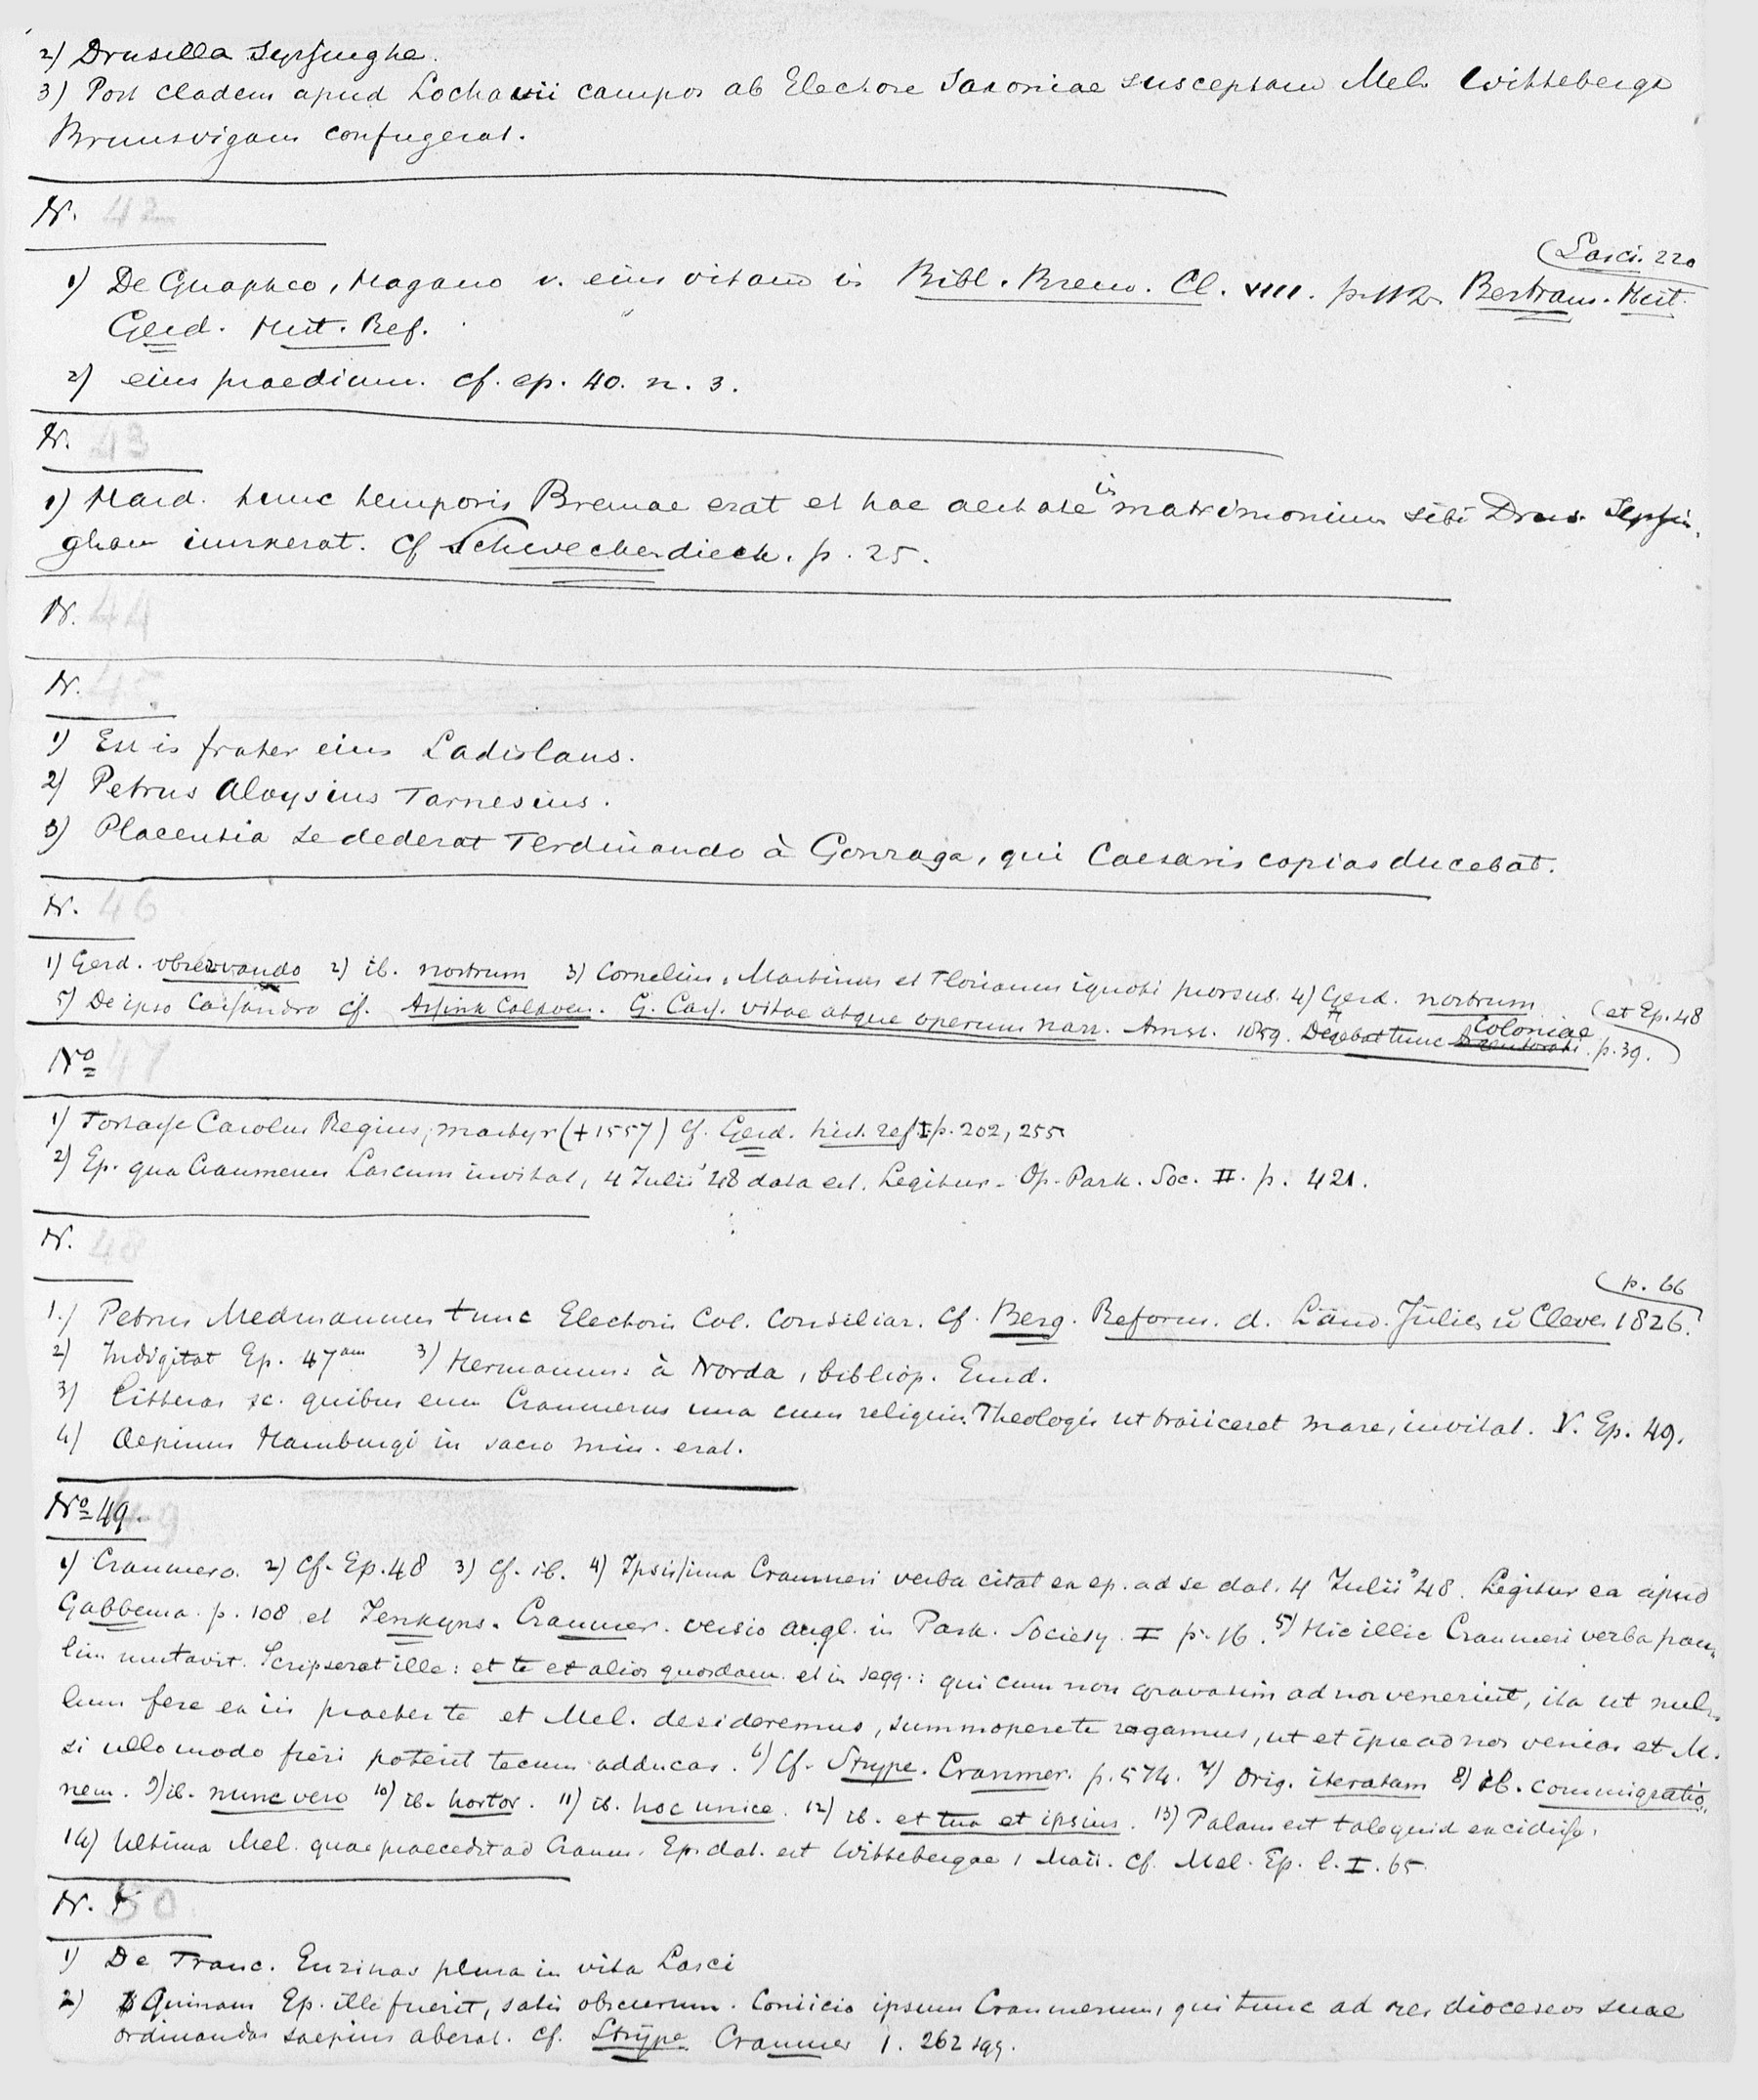 2) Drusilla Sypsinghe.
3) Post cladem apud Lochavii campos ab Electore Saxoniae susceptam Mel. Witteberga
Brunsvigam confugerat.
N. 42
(Lasci. 220
1) De Gnapheo, Hagano v. eius vitam in Bibl. Brem. Cl. VIII. p. 112. Bertram. Hist.
Gerd. Hist. Ref.
2) eius praedium. cf. ep. 40. n. 3.
N. 43
1) Hard. tunc temporis Bremae erat et hac aestate in matrimonium sibi Drus. Sypsin-
gham iunxerat. Cf Schweckerdieck. p. 25.
N. 44
N. 45
1) Est is frater eius Ladislaus.
2) Petrus Aloysius Farnesius.
3) Placentia se dederat Ferdinando à Gonzaga, qui Caesaris copias ducebat.
N. 46
1) Gerd. observando 2) ib. nostrum 3) Cornelius, Martinus et Florianus ignoti prorsus. 4) Gerd. nostrum (et Ep. 48
5) De ipso Cassandro cf. G. Cass. vitae atque operum narr. Amst. 1859. Degebat tunc Coloniae p. 39.)
No 47
1) Fortasse Carolus Regius, martyr (+ 1557) cf. Gerd. hist. ref I p. 202, 255
2) Ep. qua Cranmerus Lascum invitat, 4 Iulii '48 data est. Legitur Op. Park. Soc. II. p. 421.
N. 48
(p. 66
1.) Petrus Medmannus tunc Electoris Col. Consiliar. Cf. Berg. Reform. d. Länd. Jülich ŭ Cleve. 1826.
2) Indigitat Ep. 47am 3) Hermannus à Norda, bibliop. Emd.
3) Litteras sc. quibus eum Cranmerus una cum reliquis Theologis ut traiiceret mare, invitat. V. Ep. 49.
4) Aepinus Hamburgi in sacro min. erat.
No 49.
1) Cranmero. 2) Cf. Ep. 48 3) Cf. ib. 4) Ipsissima Cranmeri verba citat ex ep. ad se dat. 4 Iulii '48. Legitur ea apud
Gabbema. p. 108 et Jenkyns. Cranmer. versio angl. in Park. Society. I p. 16. 5) Hic illic Cranmeri verba pau-
lim mutavit. Scripserat ille: et te et alios quosdam. et in seqq.: qui cum non gravatim ad nos venerint, ita ut nul-
lum fere ex iis praeter te et Mel. desideremus, summopere te rogamus, ut et ipse ad nos venias et M.
si ullo modo fieri poterit tecum adducas. 6) Cf. Strype. Cranmer. p. 574. 7) Orig. iteratam 8) ib. commigratio-
nem. 9) ib. nunc vero 10) ib. hortor. 11) ib. hoc unice. 12) ib. et tua et ipsius. 13) Palam est tale quid excidisse.
14) Ultima Mel. quae praecedit ad Cranm. Ep. dat. est Wittebergae 1 Maii. Cf. Mel. Ep. l. I. 65
N. 50
1) De Franc. Enzinas plura in vita Lasci
2) Quinam Ep. ille fuerit, satis obscurum. Coniicio ipsum Cranmerum, qui tunc ad res dioceseos suae
ordinandas saepius aberat. cf. Strype Cranmer 1. 262 sqq.